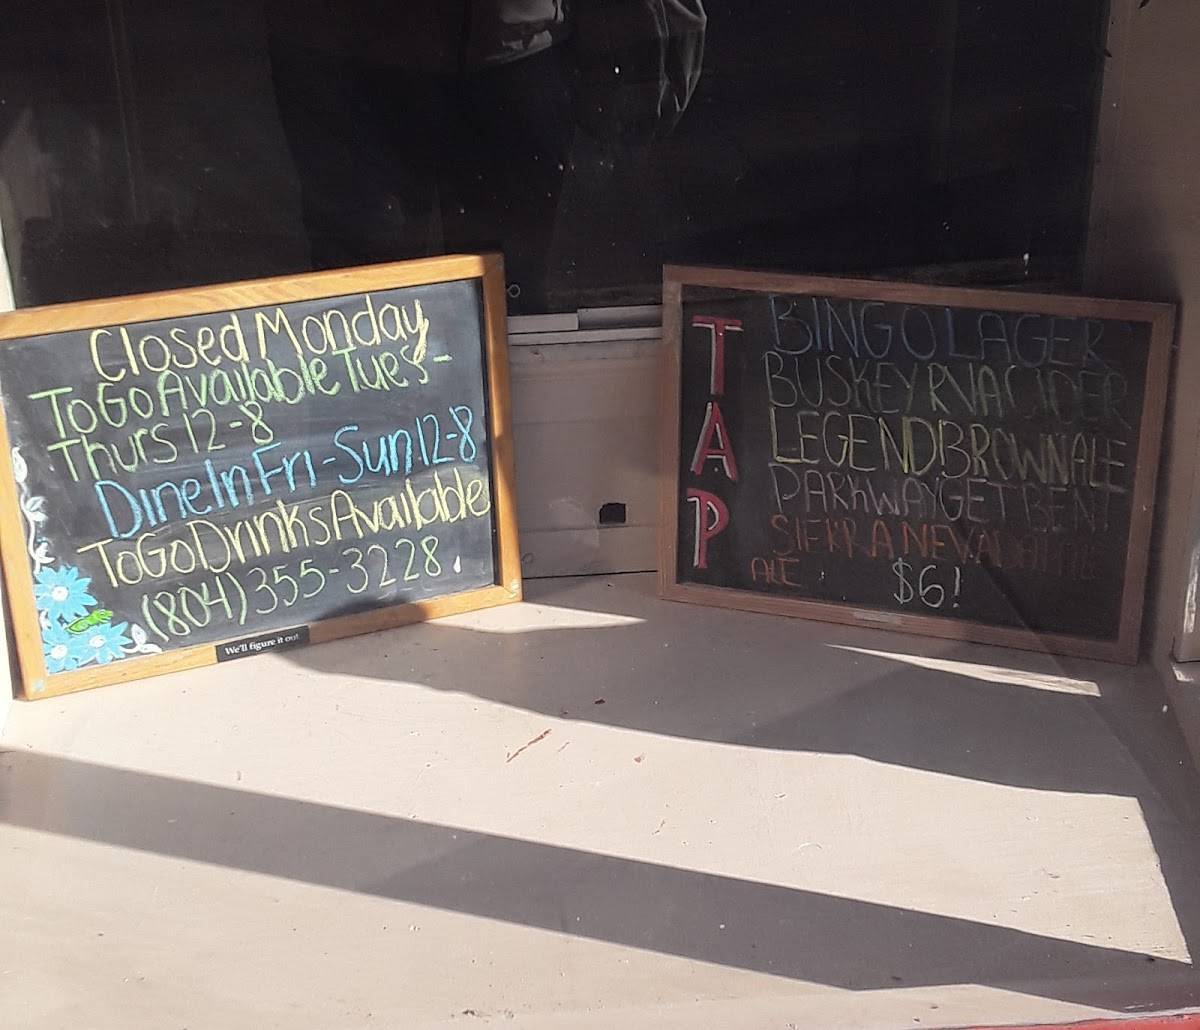 Closed Monday
To Go Available Tues-
Thurs 12-8
Dine In Fri-Sun 12-8
To Go Drinks Available
(804) 355-3228
We'll figure it out
TAP
BINGO LAGER
BUSKEY RVA CIDER
LEGEND BROWN ALE
PARKWAY GET BENT
SIERRA NEVADA
ALE $6!